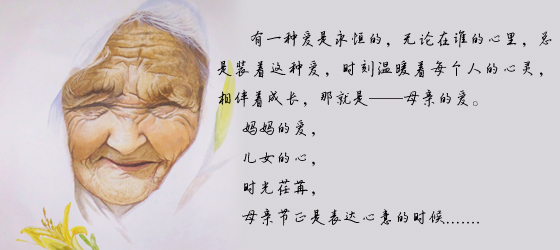 有一种爱是永恒的，无论在谁的心里，总
是装着这种爱，时刻温暖着每个人的心灵，
相伴着成长，那就是——母亲的爱。
妈妈的爱，
儿女的心，
时光荏苒，
母亲节正是表达心意的时候.......